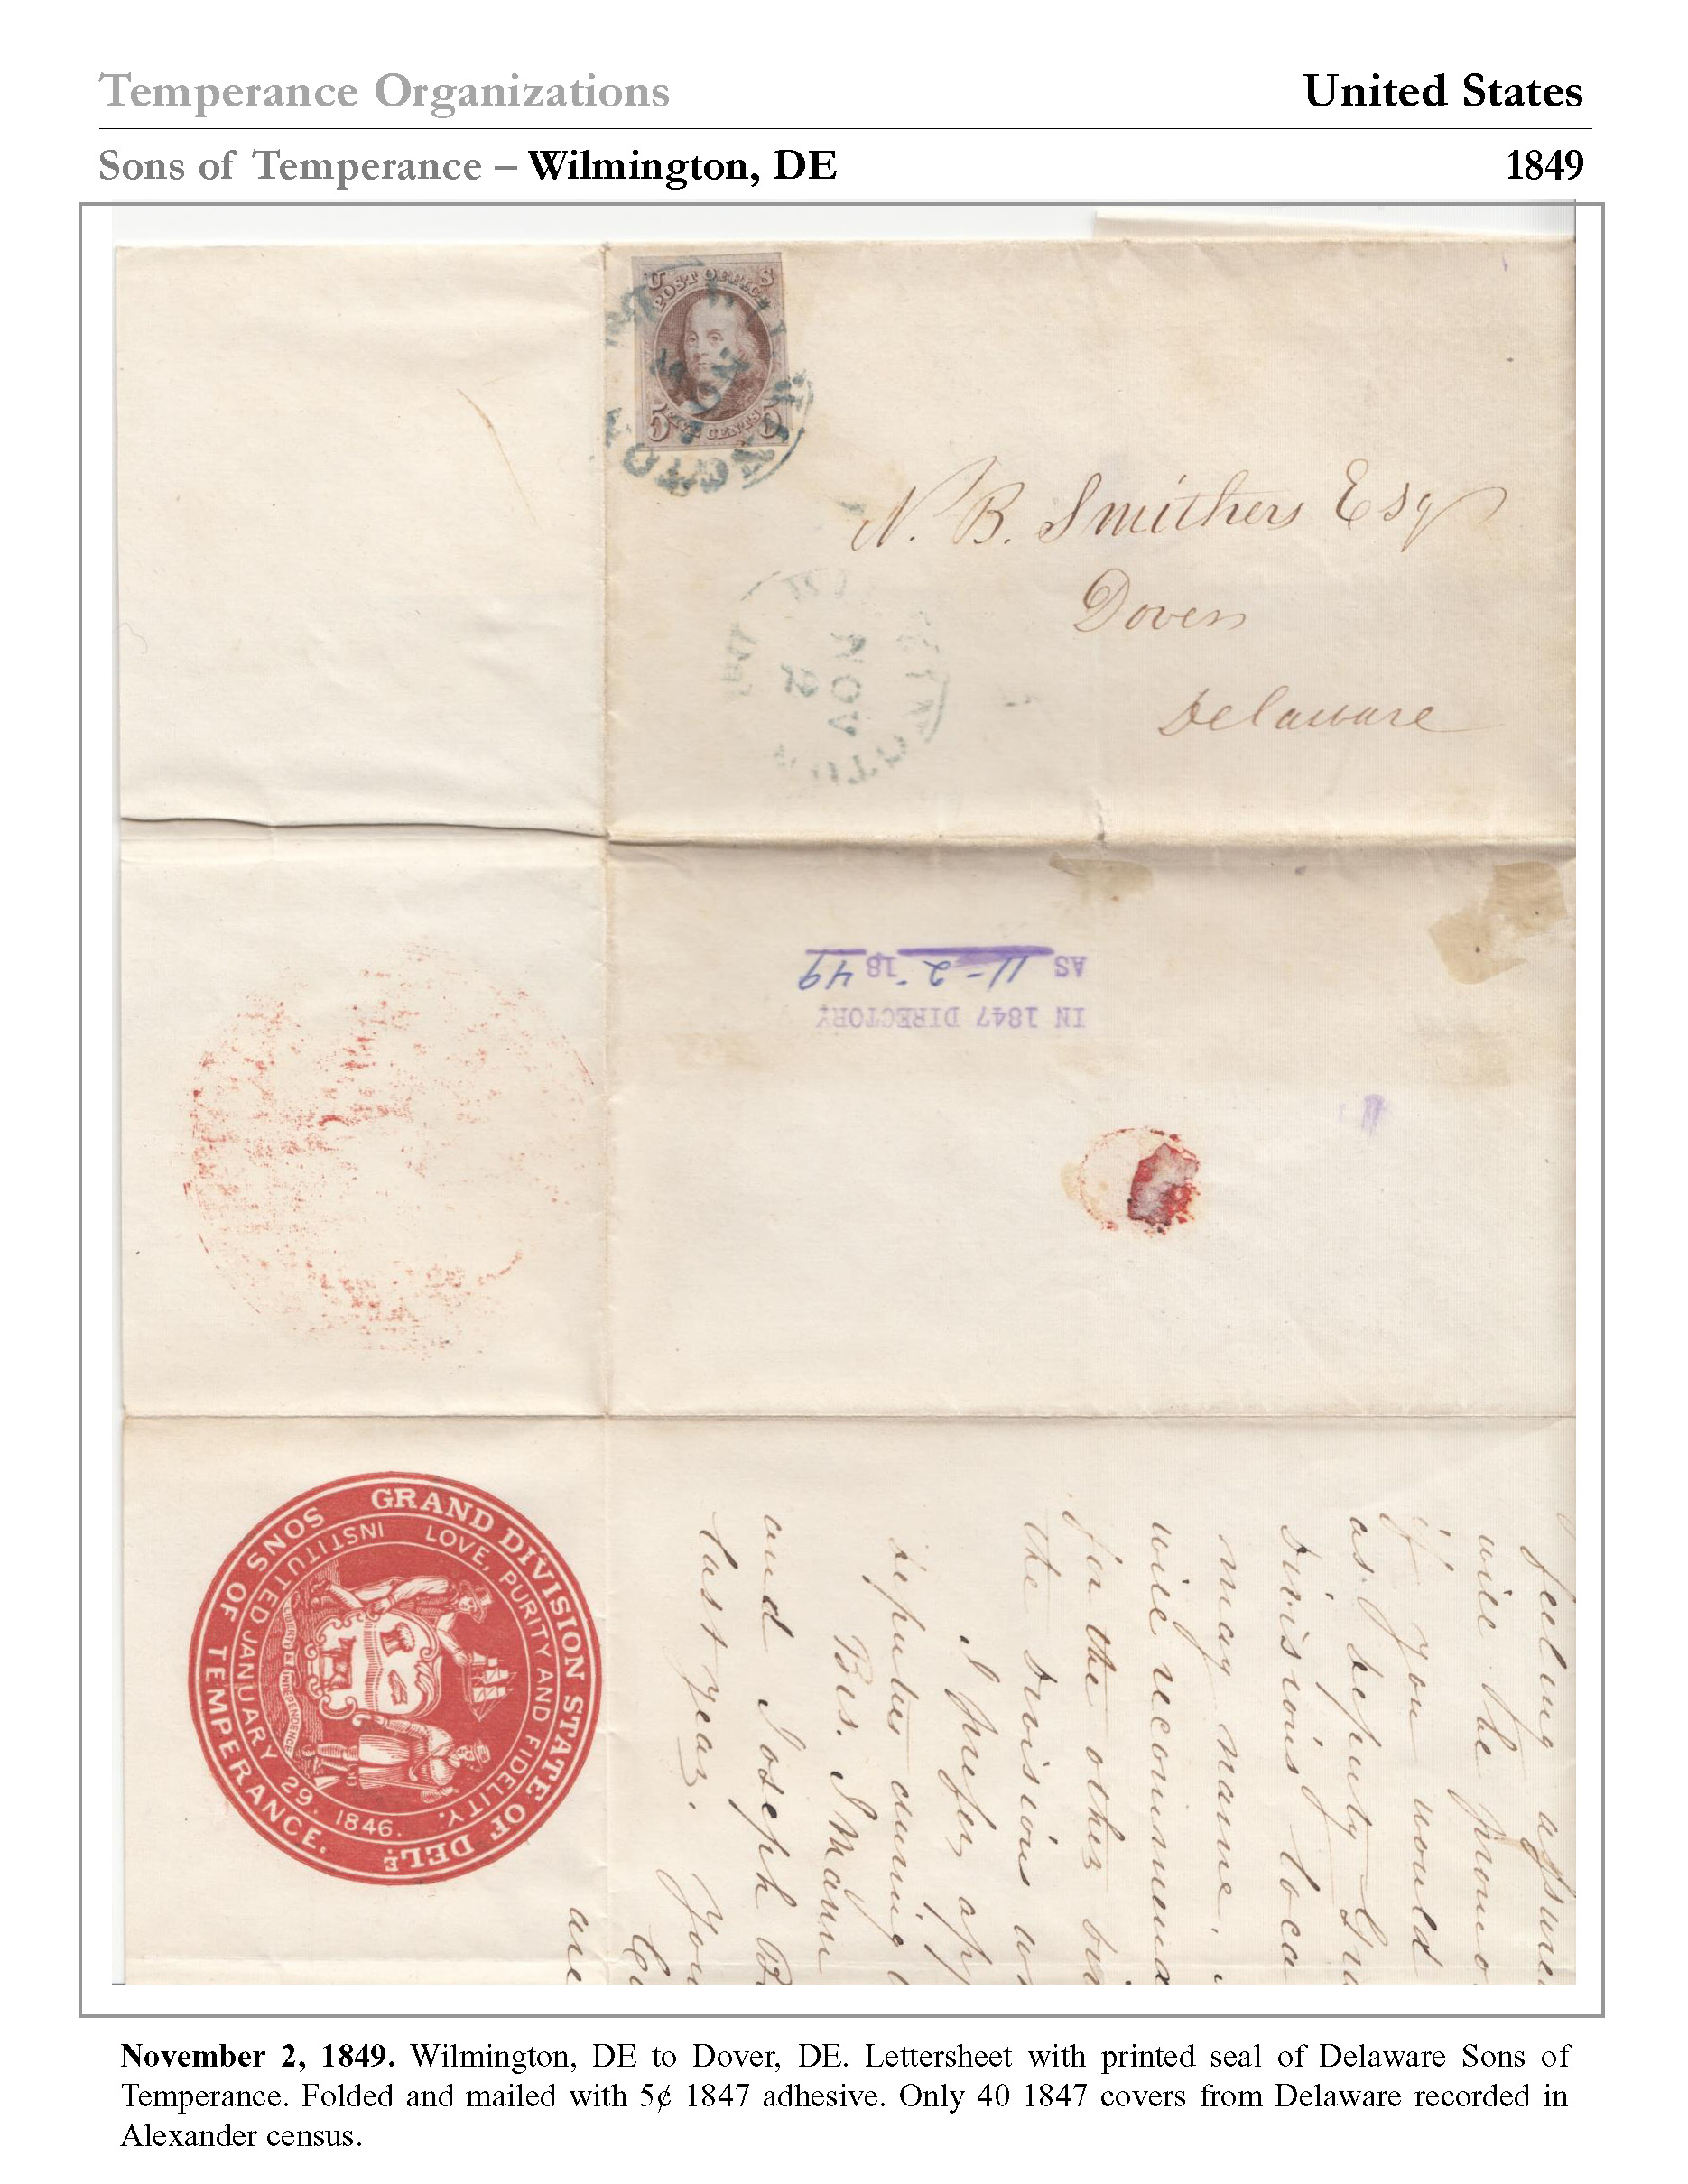 Temperance Organizations
United States
Sons of Temperance – Wilmington, DE
1849
U S
POST OFFICE
5 FIVE CENTS 5
N. B. Smithers Esq
Dover
Delaware
NOV
AS 11-2- 1849
IN 1847 DIRECTORY
GRAND DIVISION STATE OF DELE.
SONS OF TEMPERANCE.
LOVE, PURITY AND FIDELITY.
INSTITUTED JANUARY 29. 1846.
LIBERTY & INDEPENDENCE
feeling assure
will be promo
if you would
as deputy Gra
divisions loca
may name.
will recommend
for the other
the divisions
I prefer
deputies during
Bros. I Mann
and Joseph
last year. You
are
November 2, 1849. Wilmington, DE to Dover, DE. Lettersheet with printed seal of Delaware Sons of
Temperance. Folded and mailed with 5¢ 1847 adhesive. Only 40 1847 covers from Delaware recorded in
Alexander census.